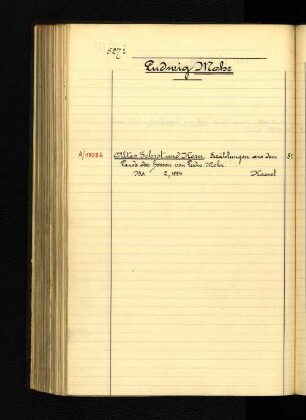 Ludwig Mohr
A/15086 Altes Schrot und Korn, Erzählungen aus dem 8°
Lande der Hessen von Ludw. Mohr
2, 1884